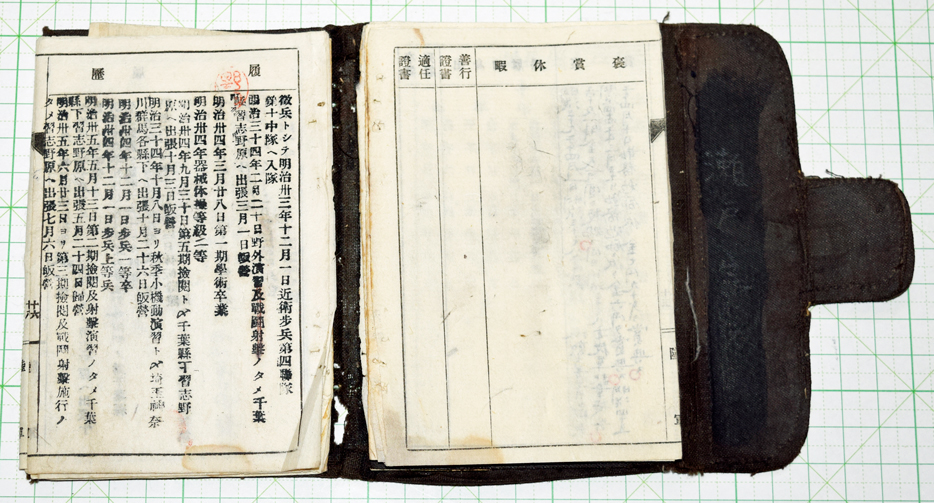 瀬戸
褒賞休暇
善行證書
適任證書
陸軍
履歴
徴兵トシテ明治卅三年十二月一日近衛歩兵第四聯隊
第十中隊ヘ入隊
明治三十四年二月二十日野外演習及戰鬪射撃ノタメ千葉
縣下習志野原ヘ出張三月一日皈營
明治卅四年三月廿八日第一期學術卒業
明治卅四年器械体操等級二等
明治卅四年九月三十日第五期撿閲トメ千葉縣下習志野
原ヘ出張十月三日皈營
明治三十四年十月八日ヨリ秋季小機動演習トメ埼玉神奈
川群馬各縣下ヘ出張十月二十六日皈營
明治卅四年十二月一日歩兵一等卒
明治卅四年十二月一日歩兵上等兵
明治卅五年五月十三日第二期撿閲及射撃演習ノタメ千葉
縣下習志野原ヘ出張五月二十四日歸營
明治卅五年六月廿三日ヨリ第三期撿閲及戰鬪射撃施行ノ
タメ習志野原ヘ出張七月六日皈營
廿六